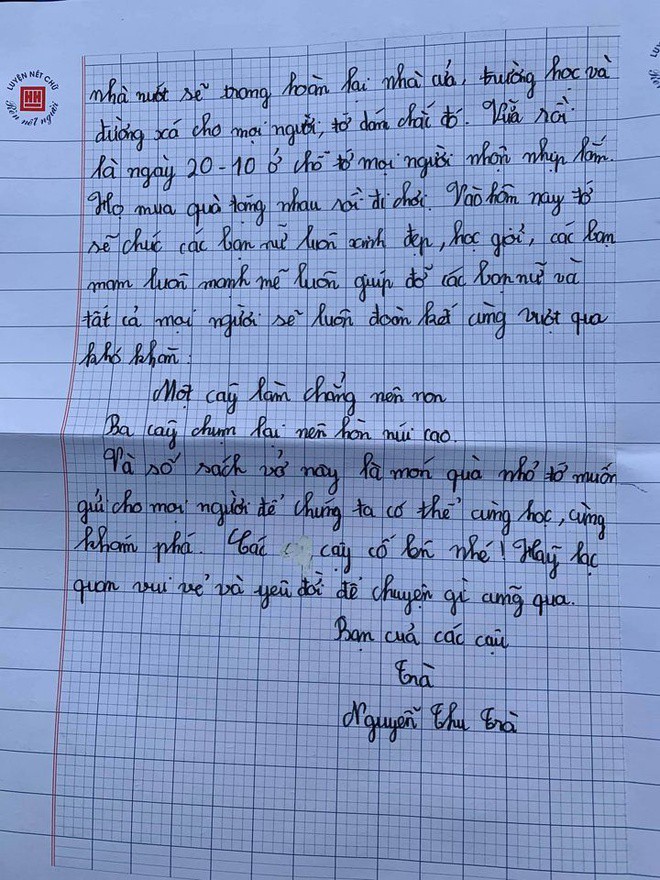 LUYỆN NÉT CHỮ
Rèn nết người
nhà nước sẽ trong hoàn lại nhà cửa, trường học và
đường xá cho mọi người, tớ dám chắc đó. Vừa rồi
là ngày 20-10 ở chỗ tớ mọi người nhộn nhịp lắm.
Họ mua quà tặng nhau rồi đi chơi. Vào hôm nay tớ
sẽ chúc các bạn nữ luôn xinh đẹp, học giỏi, các bạn
nam luôn mạnh mẽ luôn giúp đỡ các bạn nữ và
tất cả mọi người sẽ luôn đoàn kết cùng vượt qua
khó khăn:
Một cây làm chẳng nên non
Ba cây chụm lại nên hòn núi cao.
Và số sách vở này là món quà nhỏ tớ muốn
gửi cho mọi người để chúng ta có thể cùng học, cùng
khám phá. Các cậy cố lên nhé! Hãy lạc
quan vui vẻ và yêu đời để chuyện gì cũng qua.
Bạn của các cậu
Trà
Nguyễn Thu Trà